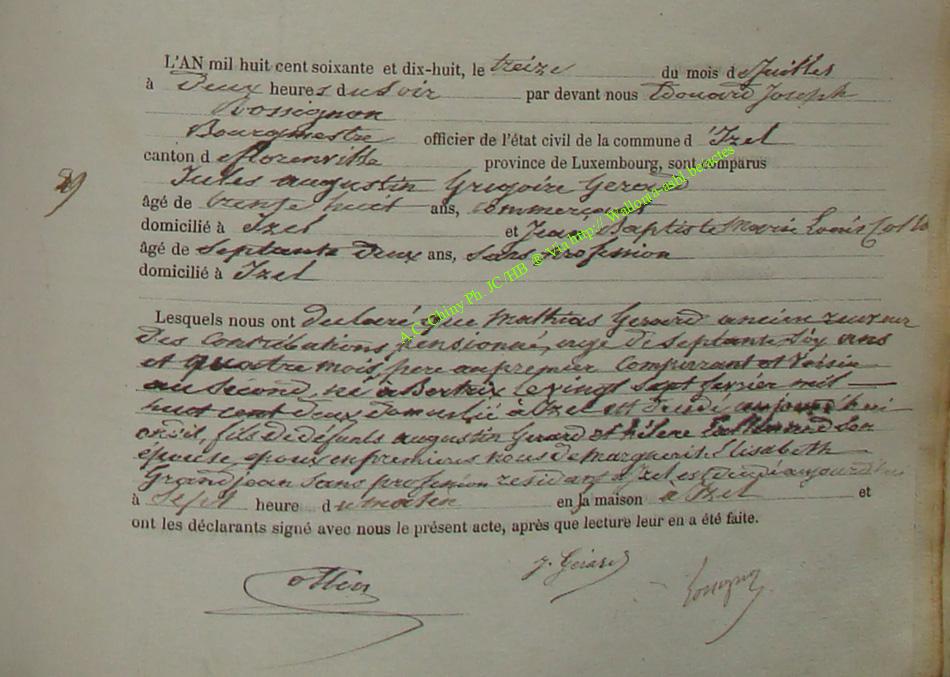 L'AN mil huit cent soixante et dix-huit, le treize du mois de Juillet
à Deux heures du Soir par devant nous Edouard Joseph
Rossignon
Bourgmestre officier de l'état civil de la commune d'Izel
canton de florenville province de Luxembourg, sont comparus
Jules augustin Grégoire Gerard
âgé de trente huit ans, Commerçant
domicilié à Izel et Jean Baptiste Marie Louis
âgé de Septante deux ans, Sans profession
domicilié à Izel
Lesquels nous ont declaré que Mathias Gerard ancien receveur
des Contributions pensionné, agé de Septante Six ans
et quatre mois, père au premier Comparant et Voisin
au Second, né à Bertrix le vingt Sept fevrier mil
huit cent deux domicilié à Izel est décédé aujourd'hui
fils de défunts augustin Gerard et hélene Son
épouse, epoux en premieres noces de Marguerite Elisabeth
Grandjean Sans profession residant à Izel est décédé aujourd'hui
à Sept heure du matin en sa maison a Izel et
ont les déclarants signé avec nous le présent acte, après que lecture leur en a été faite.
J. Gérard
A.C. Chiny Ph. JC/HB ® Via http:// Wallouta-asbl.be/actes